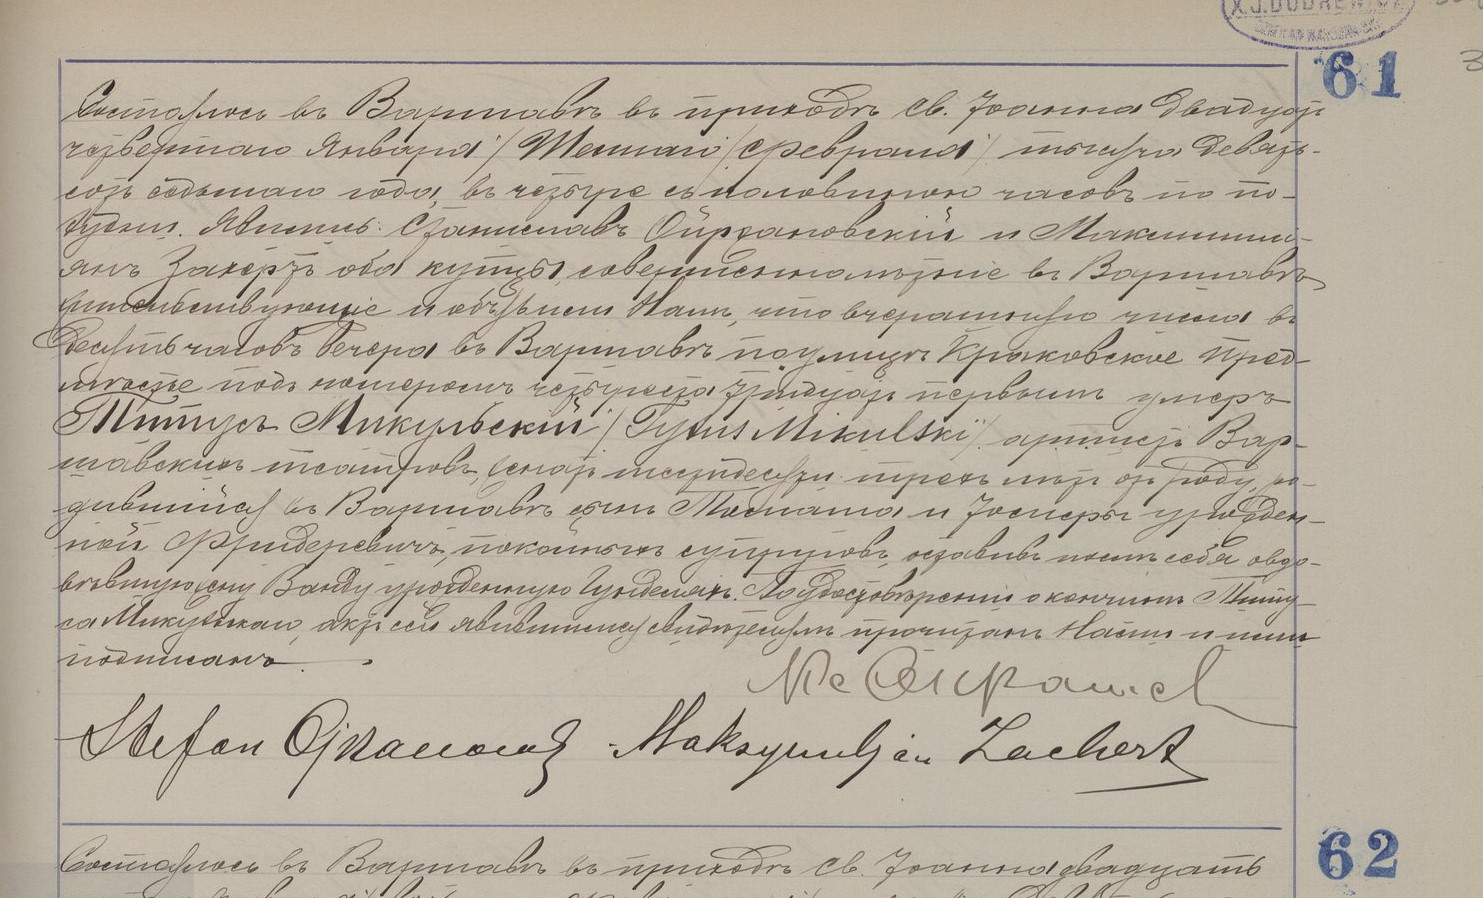 X.J.DUDREWICZ
61
Состоялось въ Варшавѣ въ приходѣ Св. Іоанна двадцать
четвертаго Января /Шестаго Февраля/ тысяча девять-
сотъ седьмаго года, въ четыре съ половиною часовъ по по-
лудни. Явились: Станиславъ Ойржановскій и Максимилі-
янъ Захертъ оба купцы, совершеннолѣтніе въ Варшавѣ
жительствующіе и объявили Намъ, что вчерашняго числа въ
десять часовъ вечера въ Варшавѣ по улицѣ Краковское Пред-
мѣстье подъ номеромъ четыреста тридцать первымъ умеръ
Титусъ Микульскій /Tytus Mikulski/ артистъ Вар-
шавскихъ театровъ, шестидесяти трехъ лѣтъ отъ роду, ро-
дившійся въ Варшавѣ сынъ и Іосифы урожден-
ной Фридеревичъ, покойныхъ супруговъ, оставивъ послѣ себя овдо-
вѣвшую жену Ванду урожденную По удостовѣреніи о кончинѣ Титу-
са Микульскаго, актъ сей явившимся свидѣтелямъ прочитанъ Нами и ими
подписанъ.
Stefan Ojrzanowski Maksymiljan Zachert
62
Состоялось въ Варшавѣ въ приходѣ Св. Іоанна двадцать